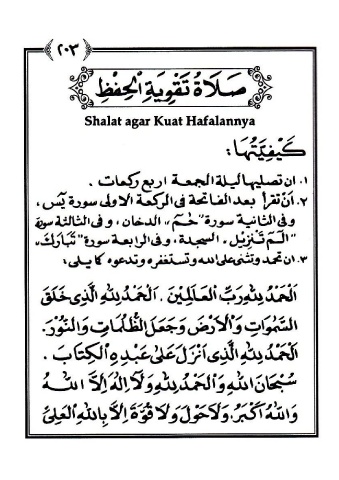 ٢٠٣
صَلَاةُ تَقْوِيَةِ الْحِفْظِ
Shalat agar Kuat Hafalannya
كَيْفِيَّتُهَا:
١. ان تصليها ليلة الجمعة اربع ركعات.
٢. أن تقرأ بعد الفاتحة في الركعة الاولى سورة يٰسٓ،
وفى الثانية سورة "حٰمٓ" الدخان، وفى الثالثة سورة
"الٓمٓ تَنْزِيْل" السجدة، وفى الرابعة سورة "تَبَارَكَ"
٣. ان تحمد وتثنى على الله وتستغفره وتدعوه كما يلى:
اَلْحَمْدُ لِلّٰهِ رَبِّ الْعَالَمِيْنَ. اَلْحَمْدُ لِلّٰهِ الَّذِى خَلَقَ
السَّمٰوَاتِ وَالْاَرْضَ وَجَعَلَ الظُّلُمَاتِ وَالنُّوْرَ.
اَلْحَمْدُ لِلّٰهِ الَّذِى اَنْزَلَ عَلَى عَبْدِهِ الْكِتَابَ.
سُبْحَانَ اللهِ وَالْحَمْدُ لِلّٰهِ وَلَا اِلٰهَ اِلَّا اللهُ
وَاللهُ اَكْبَرُ. وَلَاحَوْلَ وَلَا قُوَّةَ اِلَّا بِاللهِ الْعَلِىِّ